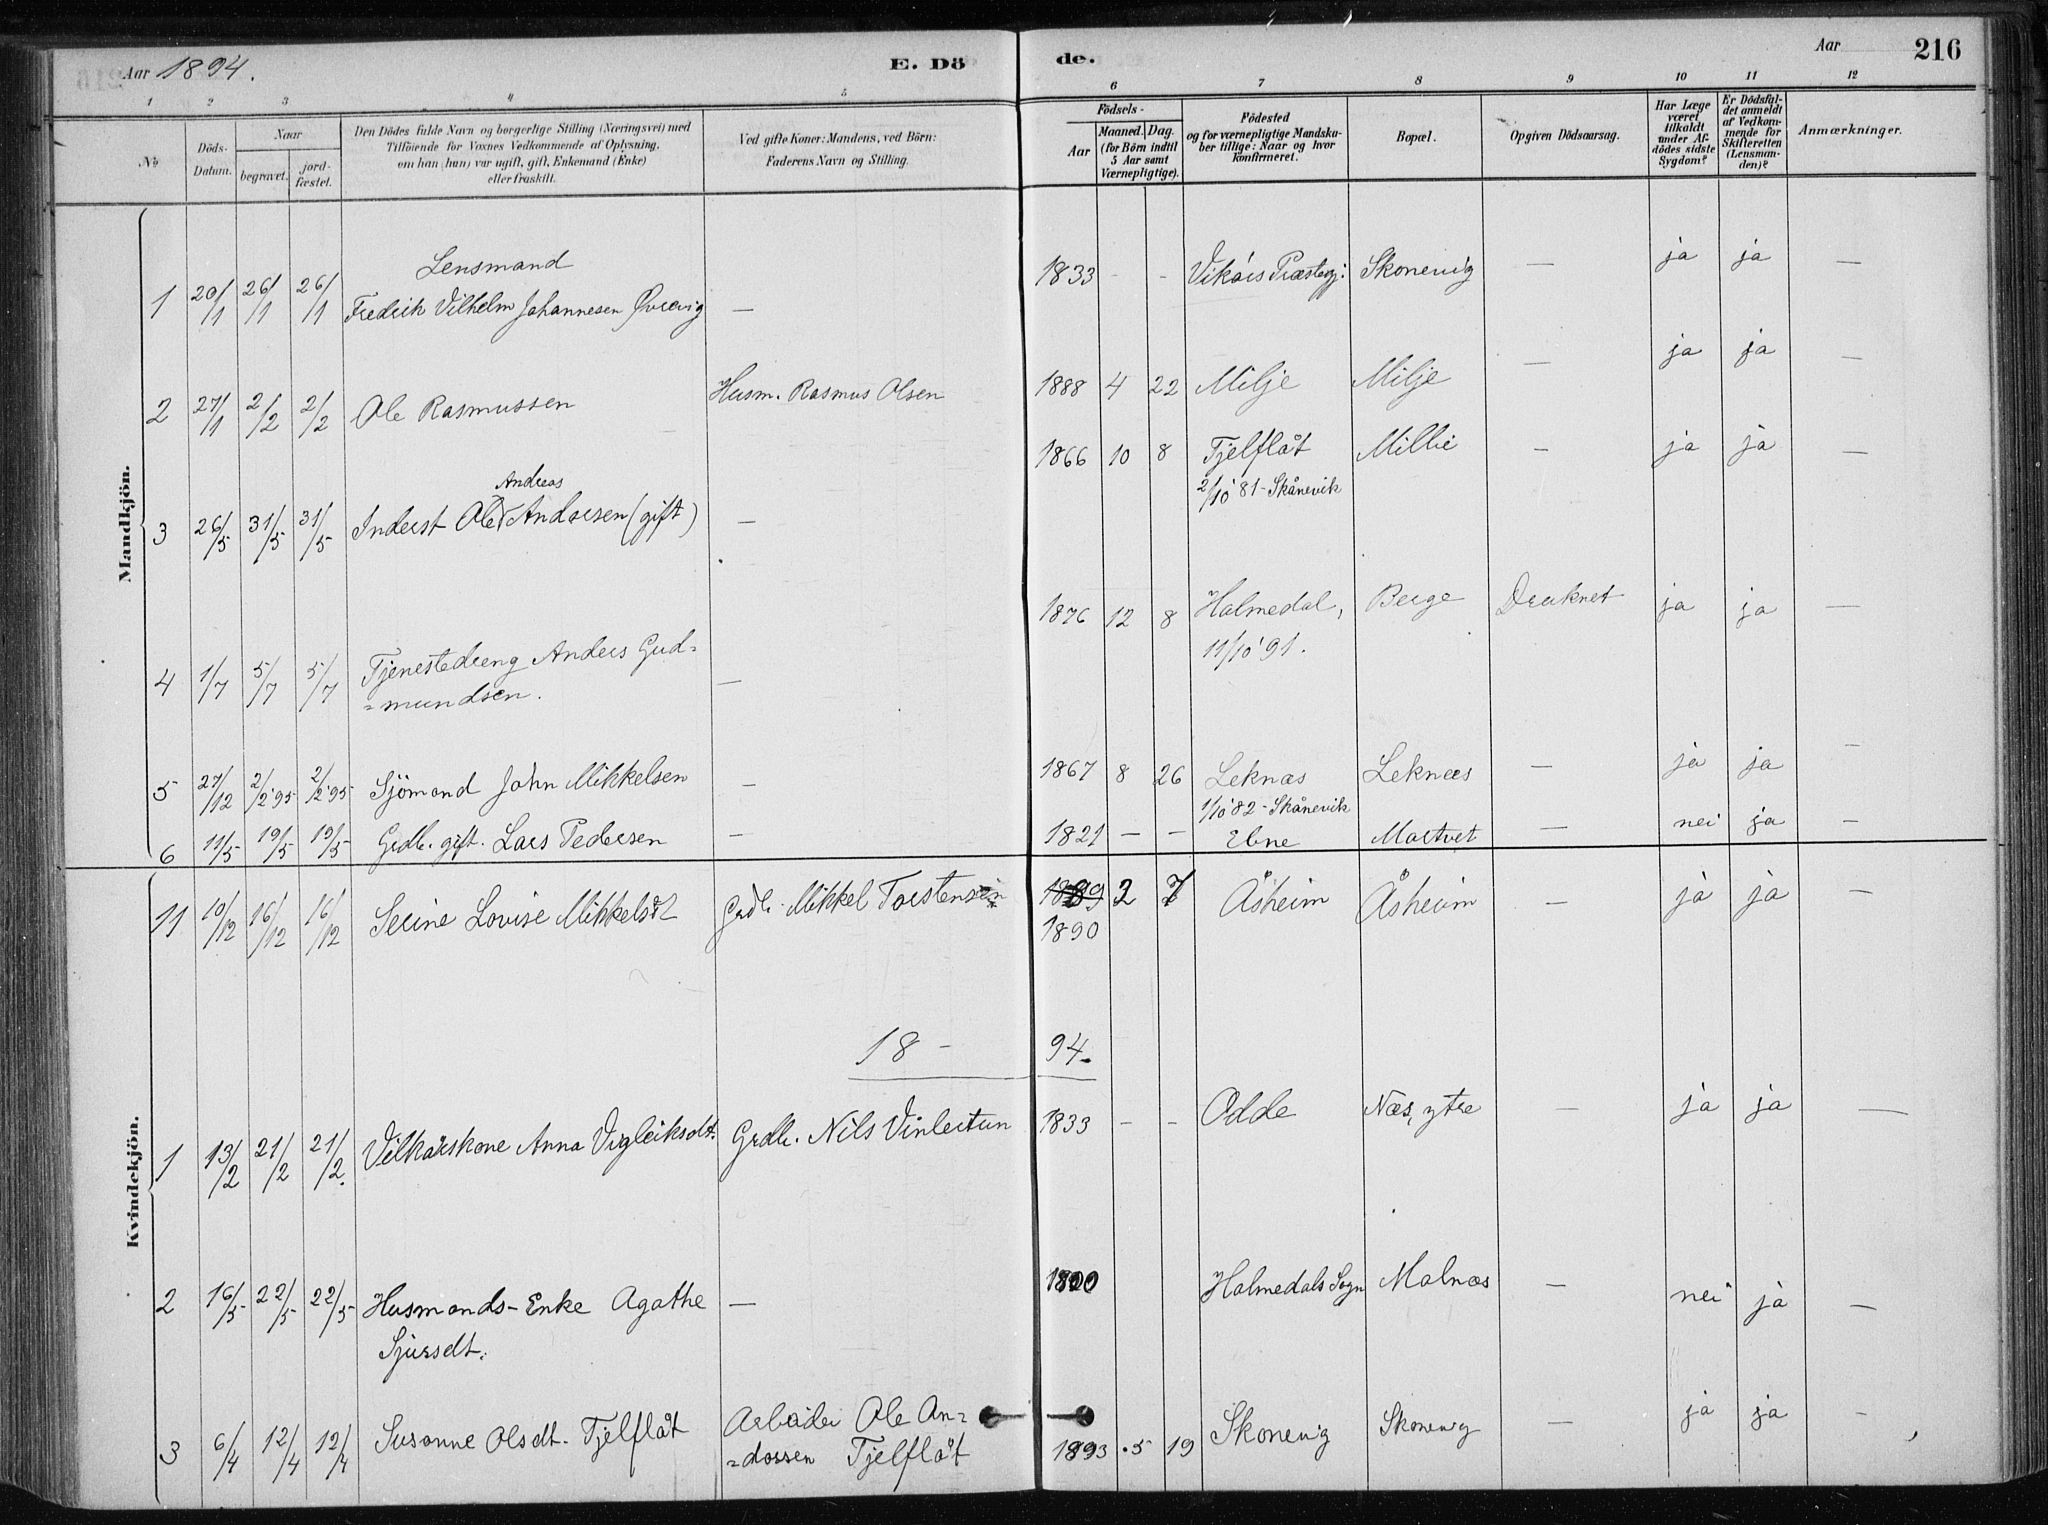 Aar 1894.
E. Dö
de.
Aar
216
1 2 3 4 5 6 7 8 9 10 11 12
No
Döds-
Datum.
Naar
begravet.
jord-
fæstet.
Den Dödes fulde Navn og borgerlige Stilling (Næringsvei) med
Tilföiende for Voxnes Vedkommende af Oplysning,
om han (hun) var ugift, gift, Enkemand (Enke)
eller fraskilt.
Ved gifte Koner: Mandens, ved Börn:
Faderens Navn og Stilling.
Födsels-
Aar
Maaned. Dag.
(for Börn indtil
5 Aar samt
Værnepligtige).
Födested
og for værnepligtige Mandska-
ber tillige: Naar og hvor
konfirmeret.
Bopæl.
Opgiven Dödsaarsag.
Har Læge
været
tilkaldt
under Af-
dödes sidste
Sygdom?
Er Dödsfal-
det anmeldt
af Vedkom-
mende for
Skifteretten
(Lensman-
den)?
Anmærkninger.
Mandkjön.
Lensmand
1 20/1 26/1 26/1 Fredrik Vilhelm Johannesen Øvrevig — 1833 - - Vikörs Præstegj: Skonevig — ja ja —
2 27/1 2/2 2/2 Ole Rasmussen Husm. Rasmus Olsen 1888 4 22 Milje Milje — ja ja —
Andreas
3 26/5 31/5 31/5 Inderst Ole Andersen (gift) — 1866 10 8 Tjelflåt Millie — ja ja —
2/10 '81 - Skånevik
4 1/7 5/7 5/7 Tjenestedreng Anders Gud= — 1876 12 8 Holmedal, Berge Druknet ja ja —
=mundsen. 11/10 '91.
5 27/12 2/2 '95 2/2 '95 Sjömand John Mikkelsen — 1867 8 26 Leknæs Leknæs — ja ja —
1/10 '82 - Skånevik
6 11/5 19/5 19/5 Grdb. gift. Lars Pedersen — 1821 — — Ebne Martvet — nei ja —
Kvindekjön.
11 10/12 16/12 16/12 Serine Lovise Mikkelsdt Grdb. Mikkel Torstensen 1889 2 7 Åsheim Åsheim — ja ja —
1890
18 - 94.
1 13/2 21/2 21/2. Vilkårskone Anna Vigleiksdt. Grdb. Nils Vinletun 1833 - - Odde Næs, ytre — ja ja —
2 16/5 22/5 22/5 Husmands-Enke Agathe — 1800 Holmedals Sogn Molnæs — nei ja —
Sjursdt.
3 6/4 12/4 12/4 Susanne Olsdt. Tjelflåt Arbeider Ole An= 1893 5 19 Skonevig Skonevig — ja ja —
=dossen Tjelflåt